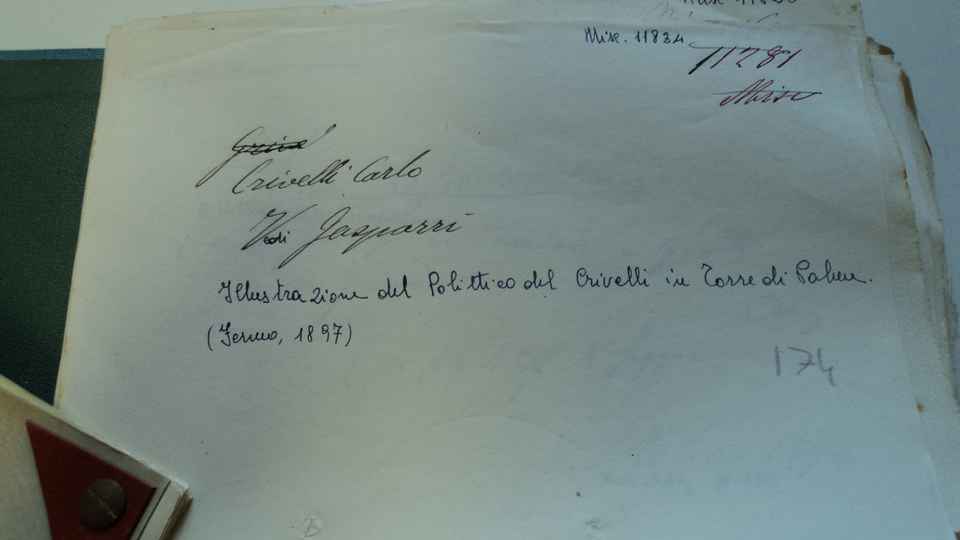 Misc. 11834
11281
Misc
Crivelli Carlo
Vedi Gasparri
Illustrazione del Polittico del Crivelli in Torre di Palm.
(Fermo, 1897)
174